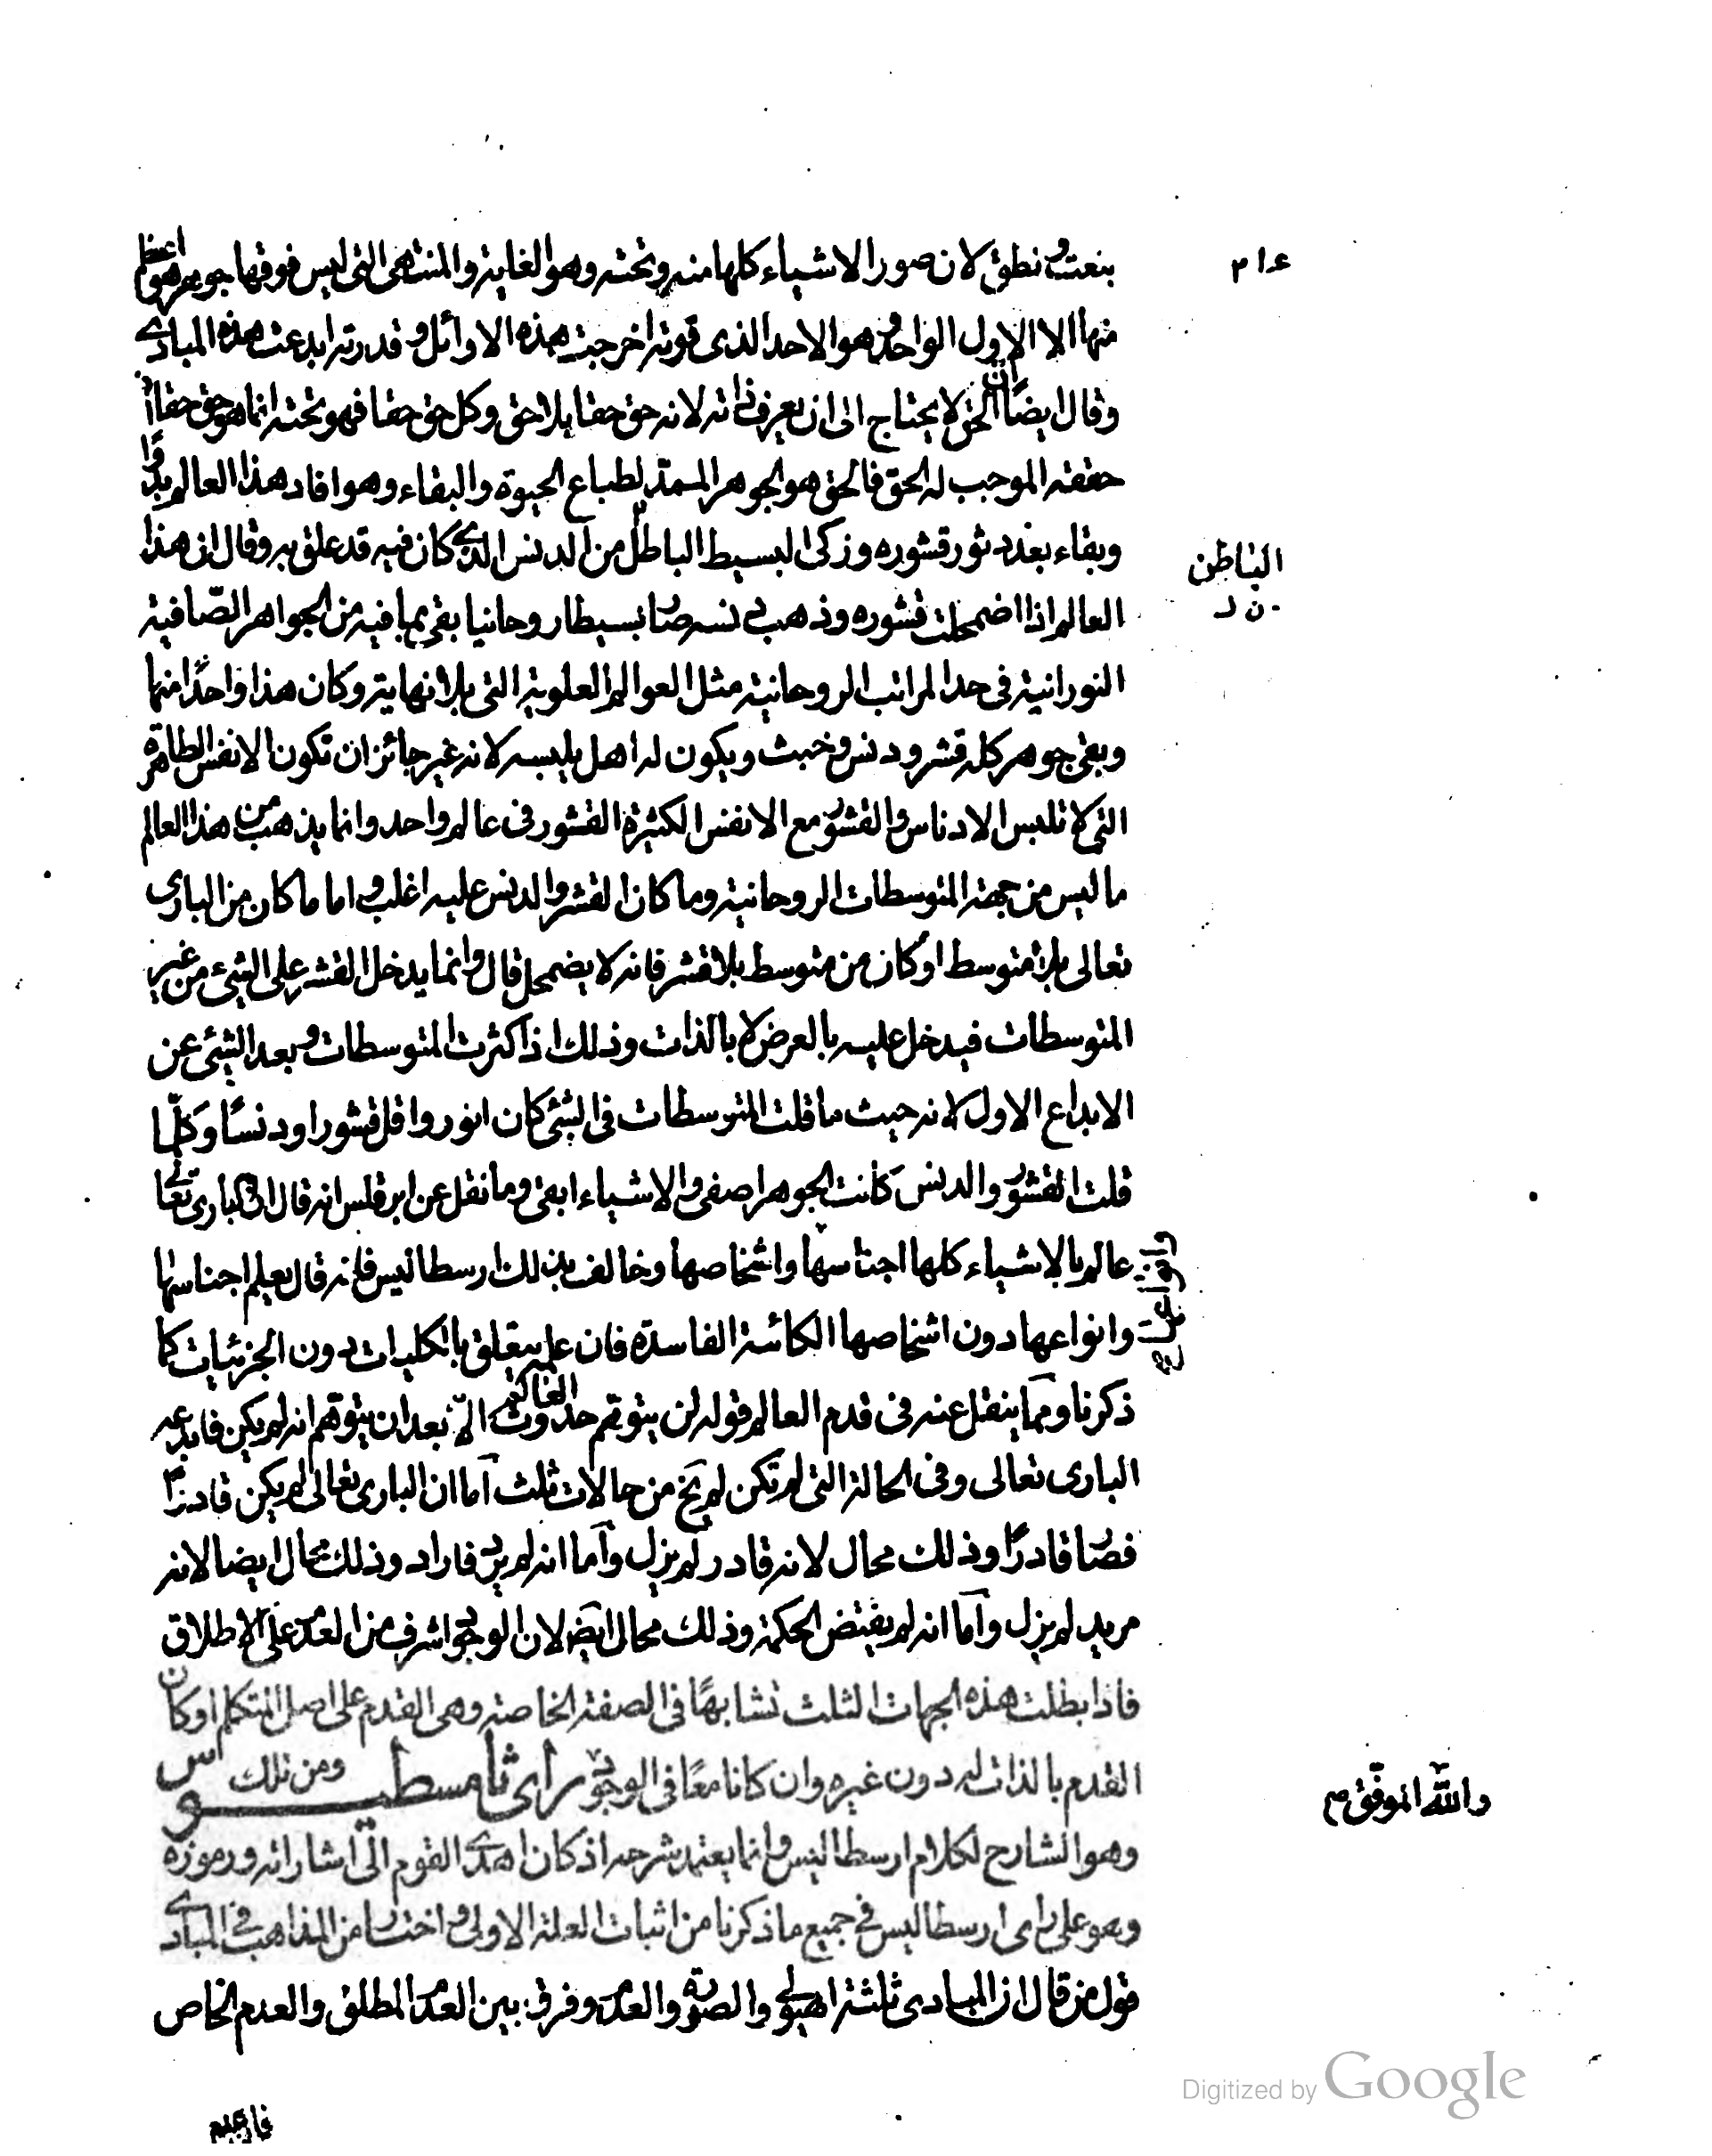 بنعت ونطق لان صور الاشياء كلها منه وتحته وهو الغاية والمنتهى التى ليس فوقها جوهر هو اعظم
منها الا الاول الواحد وهو الاحد الذى قوته اخرجت هذه الاوائل وقدرته ابدعت هذه المبادى
وقال ايضا ان الحق لا يحتاج الى ان يعرف ذاته لانه حق حقا بلا حق وكل حق حقا فهو تحته انما هو حق حقا اذ
حققه الموجب له الحق فالحق هو الجوهر الممد لطباع الحيوة والبقاء وهو افاد هذا العالم بدوا
وبقاء بعد دثور قشوره وزكى البسيط الباطل من الدنس الذى كان فيه قد علق به وقال ان هذا
العالم اذا اضمحلت قشوره وذهب دنسه صار بسيطا روحانيا بقى بما فيه من الجواهر الصّافية
النورانية فى حد المراتب الروحانية مثل العوالم العلوية التى بلا نهاية وكان هذا واحدًا منها
وبقى جوهر كل قشر ودنس وخبث ويكون له اهل يلبسه لانه غير جائز ان تكون الانفس الطاهرة
التى لا تلبس الادناس والقشور مع الانفس الكثيرة القشور فى عالم واحد وانما يذهب من هذا العالم
ما ليس من جهة المتوسطات الروحانية وما كان القشر والدنس عليه اغلب واما ما كان من البارى
تعالى بلا متوسط او كان من متوسط بلا قشر فانه لا يضمحل قال وانما يدخل القشر على الشىء من غير
المتوسطات فيدخل عليه بالعرض لا بالذات وذلك اذا كثرت المتوسطات وبعد الشئ عن
الابداع الاول لانه حيث ما قلت المتوسطات فى الشئ كان انور واقل قشورا ودنسًا وكلّما
قلت القشور والدنس كانت الجواهر اصفى والاشياء ابقى ومما نقل عن ابرقلس انه قال ان البارى تعالى
عالم بالاشياء كلها اجناسها واشخاصها وخالف بذلك ارسطاليس فانه قال يعلم اجناسها
وانواعها دون اشخاصها الكائنة الفاسدة فان علمه يتعلق بالكليات دون الجزئيات كما
ذكرنا ومما ينقل عنه فى قدم العالم قوله لن يتوهم حدوث العالم الّا بعد ان يتوهم انه لم يكن فابدعه
البارى تعالى وفى الحالة التى لم تكن لم يخ من حالات ثلث اما ان البارى تعالى لم يكن قادرًا
فصار قادرًا وذلك محال لانه قادر لم يزل واما انه لم يرد فاراد وذلك محال ايضا لانه
مريد لم يزل واما انه لم يقتض الحكمة وذلك محال ايضا لان الوجود اشرف من العدم على الاطلاق
فاذا بطلت هذه الجهات الثلث تشابها فى الصفة الخاصة وهى القدم على اصل المتكلم او كان
القدم بالذات له دون غيره وان كانا معًا فى الوجود راى ثامسطيوس ومن تلك
وهو الشارح لكلام ارسطاليس وانما يعتمد شرحه اذ كان اهدى القوم الى اشاراته ورموزه
وهو على راى ارسطاليس فى جميع ما ذكرنا من اثبات العلة الاولى واختار من المذاهب فى المبادى
قول من قال ان المبادى ثلثة الهيولى والصورة والعدم وفرق بين العدم المطلق والعدم الخاص
الباطن
ن ل
والله الموفق م
Digitized by Google